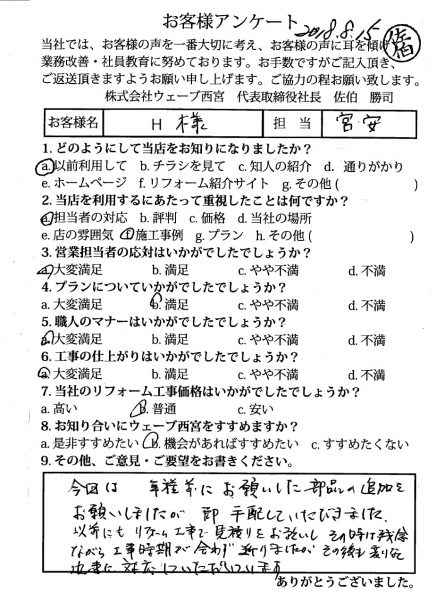 お客様アンケート 2018.8.15 佐伯
当社では、お客様の声を一番大切に考え、お客様の声に耳を傾け
業務改善・社員教育に努めております。お手数ですがご記入頂き、
ご返送頂きますようお願い申し上げます。ご協力の程お願い致します。
株式会社ウェーブ西宮 代表取締役社長 佐伯 勝司
お客様名 H 様 担当 宮安
1. どのようにして当店をお知りになりましたか?
a. 以前利用して b. チラシを見て c. 知人の紹介 d. 通りがかり
e. ホームページ f. リフォーム紹介サイト g. その他 ( )
2. 当店を利用するにあたって重視したことは何ですか?
a. 担当者の対応 b. 評判 c. 価格 d. 当社の場所
e. 店の雰囲気 f. 施工事例 g. プラン h. その他 ( )
3. 営業担当者の応対はいかがでしたでしょうか?
a. 大変満足 b. 満足 c. やや不満 d. 不満
4. プランについていかがでしたでしょうか?
a. 大変満足 b. 満足 c. やや不満 d. 不満
5. 職人のマナーはいかがでしたでしょうか?
a. 大変満足 b. 満足 c. やや不満 d. 不満
6. 工事の仕上がりはいかがでしたでしょうか?
a. 大変満足 b. 満足 c. やや不満 d. 不満
7. 当社のリフォーム工事価格はいかがでしたでしょうか?
a. 高い b. 普通 c. 安い
8. お知り合いにウェーブ西宮をすすめますか?
a. 是非すすめたい b. 機会があればすすめたい c. すすめたくない
9. その他、ご意見・ご要望をお書きください。
今回は 年程前にお願いした部品の追加を
お願いしましたが 即手配していただきました。
以前にもリフォーム工事で見積りをお願いし その時は残念
ながら工事時期が合わず 断りましたが その後も
対応していただいています
ありがとうございました。